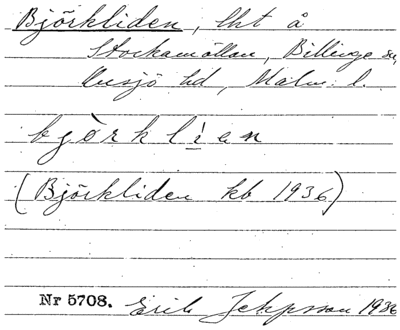 Björkliden, lht å
Stockamöllan, Billinge sn,
Onsjö hd, Malm. l.
björklien
(Björkliden kb 1936)
Nr 5708. Erik Jeppsson 1936